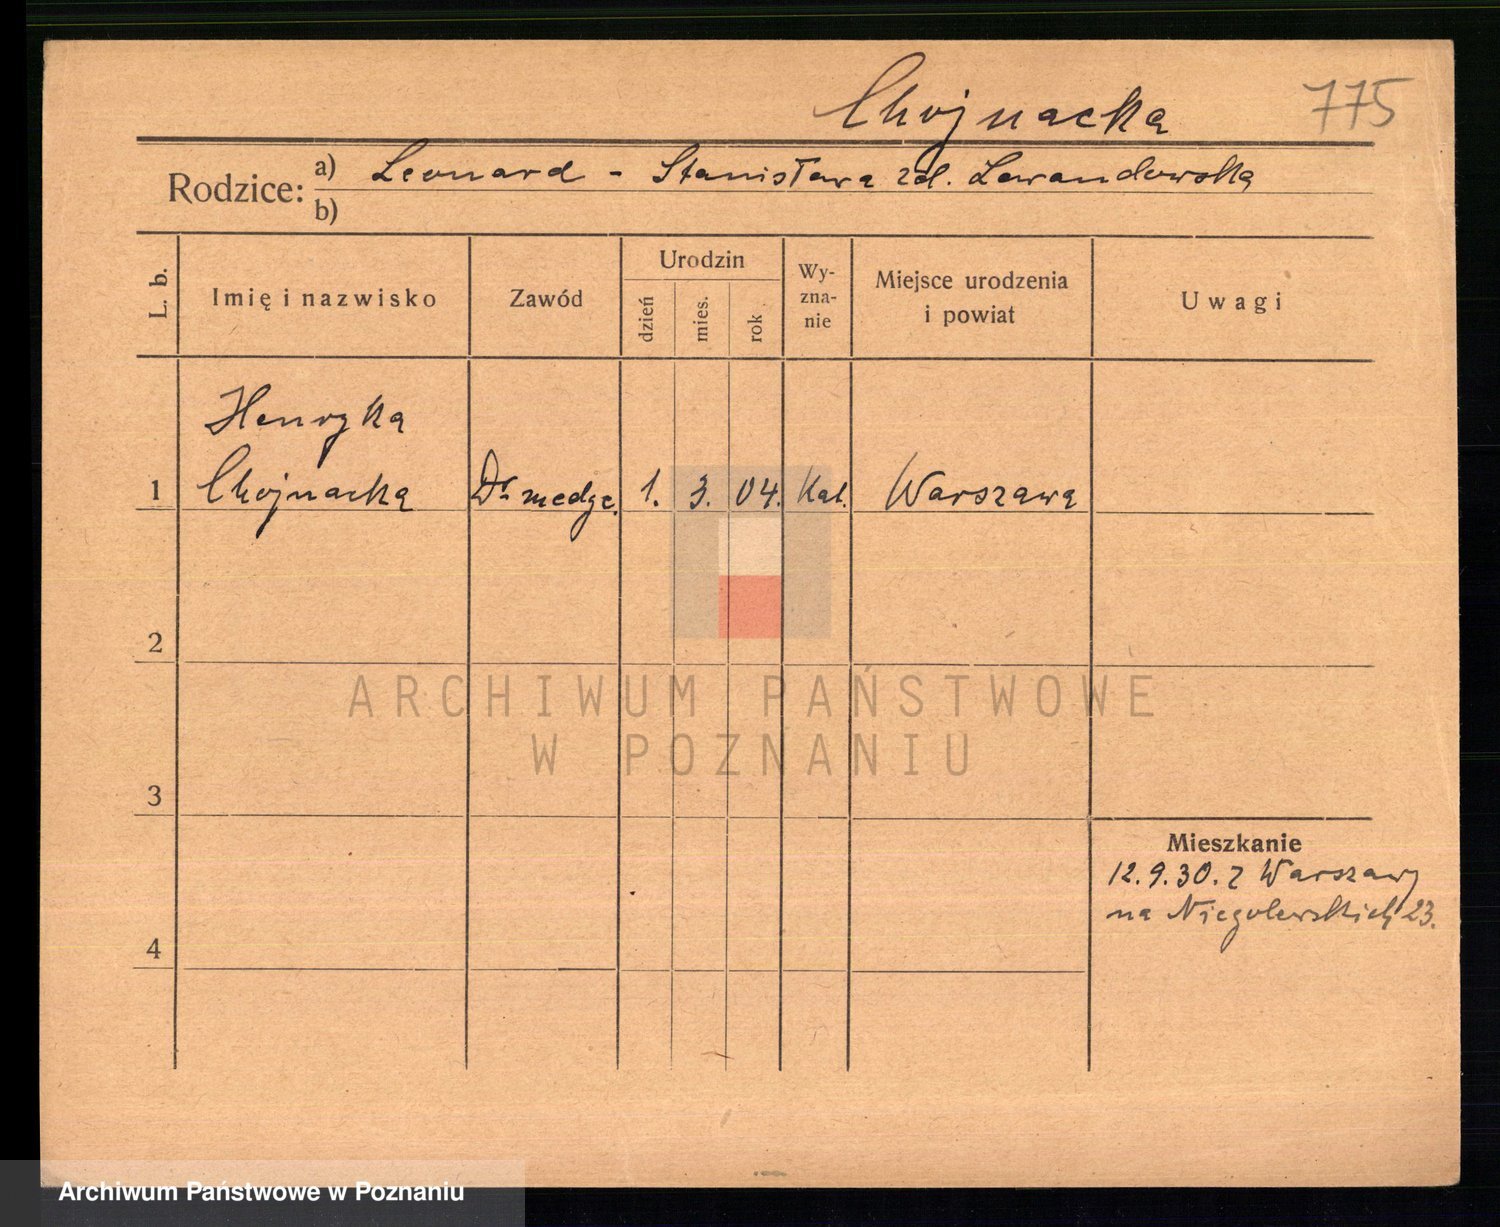 Chojnacka
775
Rodzice: a) Leonard - Stanisława zd. Lewandowska
b)
L. b.
Imię i nazwisko
Zawód
Urodzin
dzień
mies.
rok
Wy-
zna-
nie
Miejsce urodzenia
i powiat
Uwagi
Henryka
1 Chojnacka Dr. medyc. 1. 3. 04. Kat. Warszawa
2
3
4
Mieszkanie
12.9.30. z Warszawy
na Niegolewskich 23.
ARCHIWUM PAŃSTWOWE
W POZNANIU
Archiwum Państwowe w Poznaniu